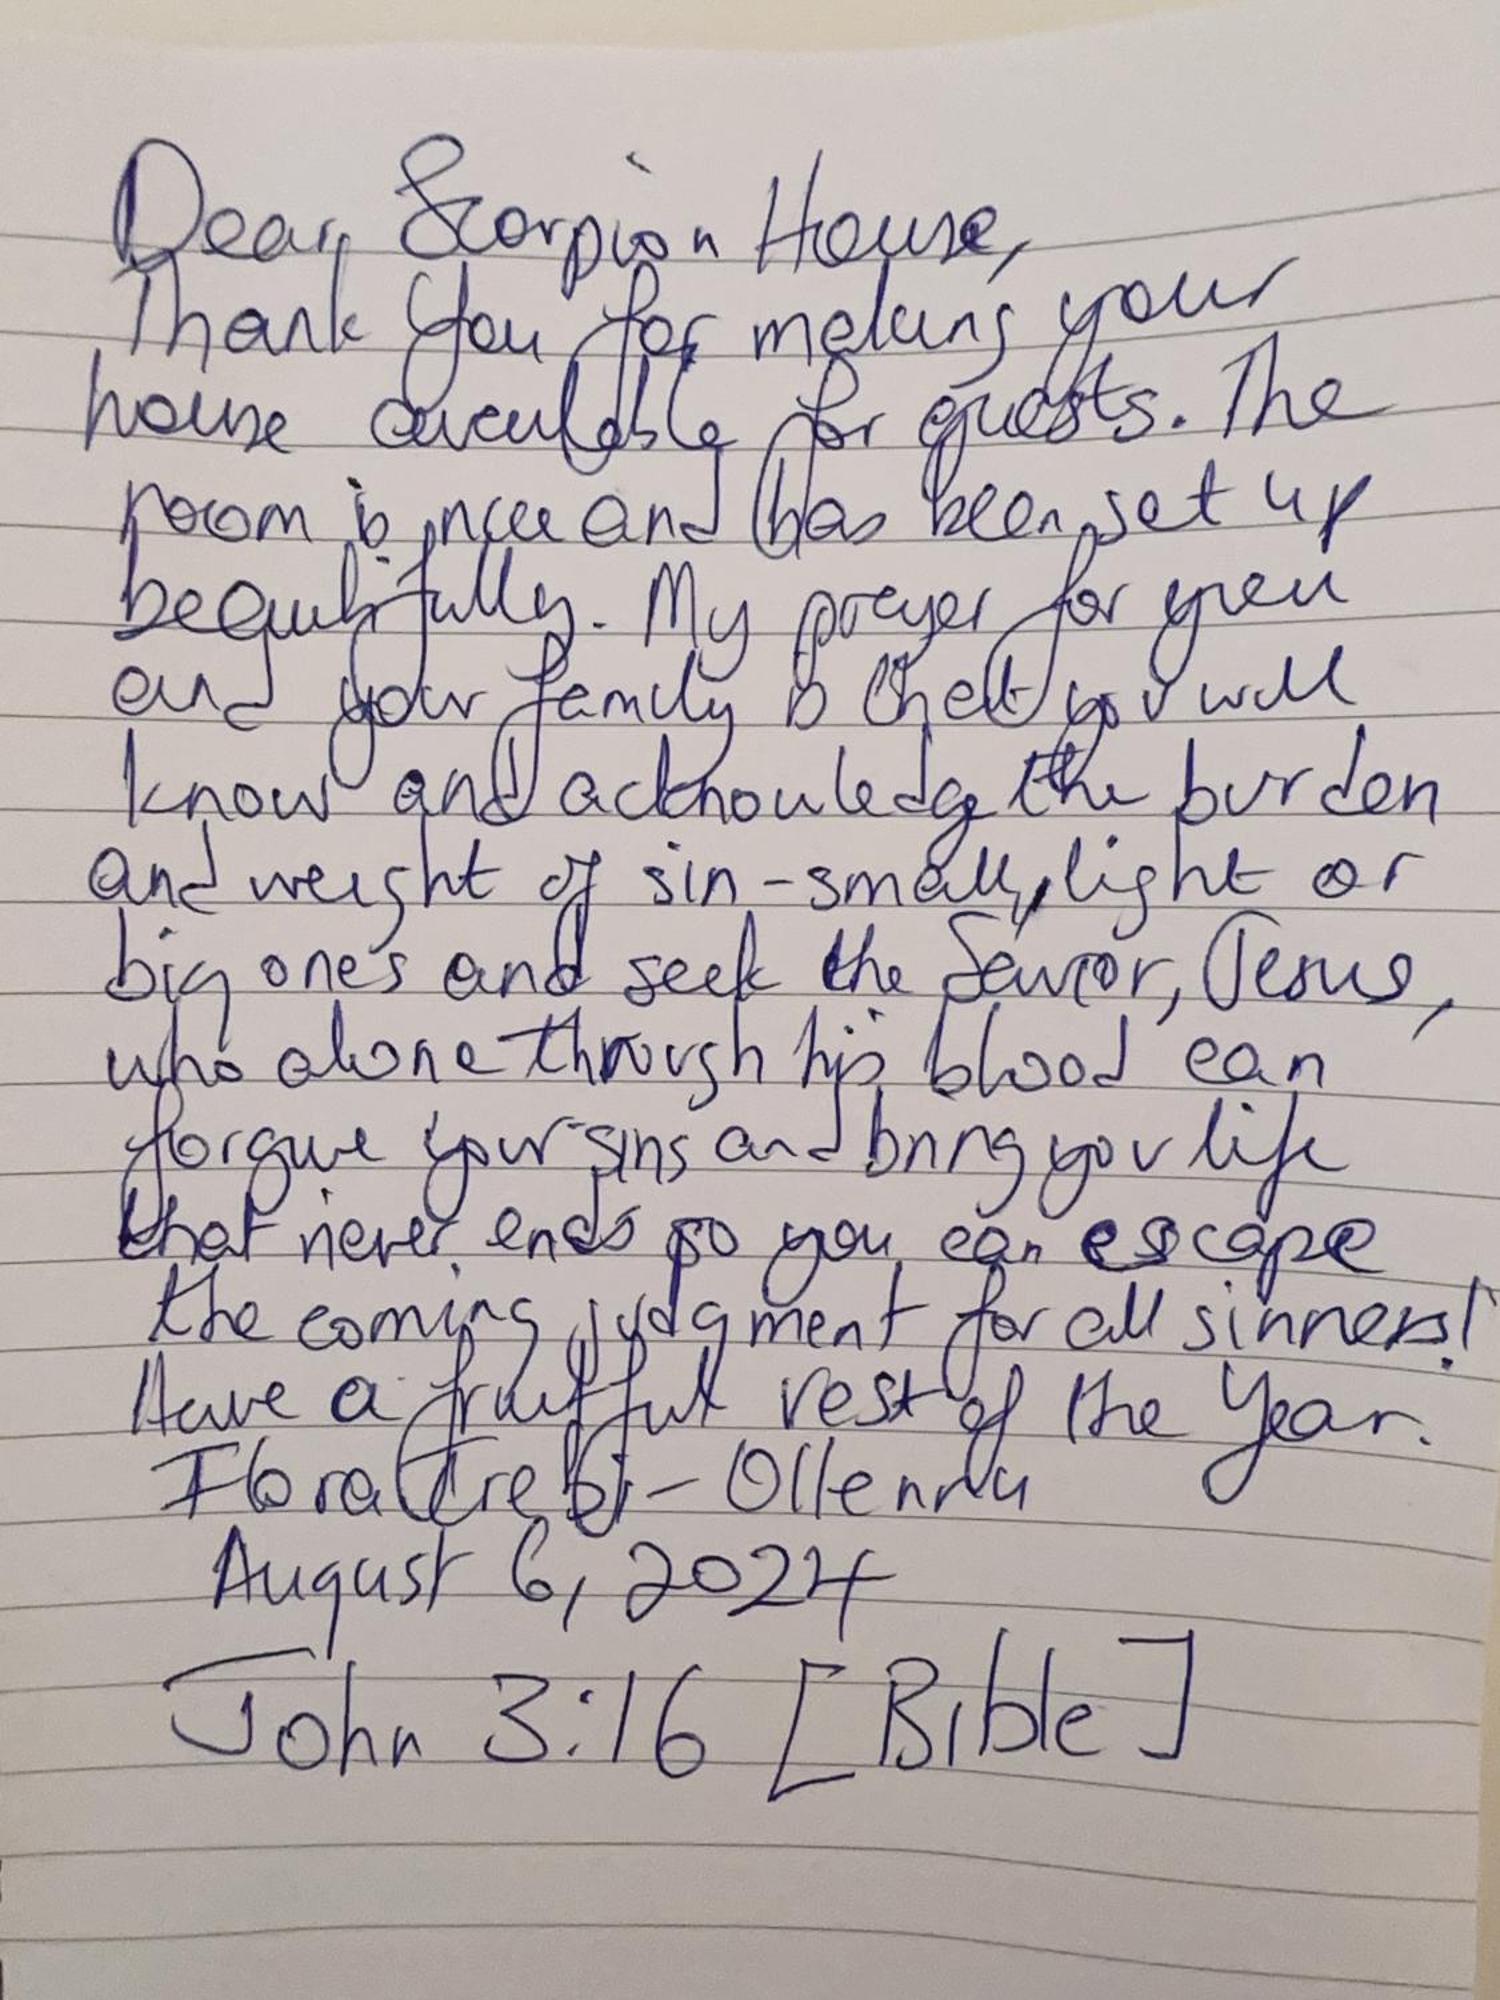 Dear Scorpion House,
Thank You for making your
house available for guests. The
room is nice and has been set up
beautifully. My prayer for you
and your family is that you will
know and acknowledge the burden
and weight of sin - small, light or
big ones and seek the Savior, Jesus,
who alone through his blood can
forgive your sins and bring you life
that never ends so you can escape
the coming judgment for all sinners!
Have a fruitful rest of the Year.
Flora Trebi-Ollennu
August 6, 2024
John 3:16 [Bible]